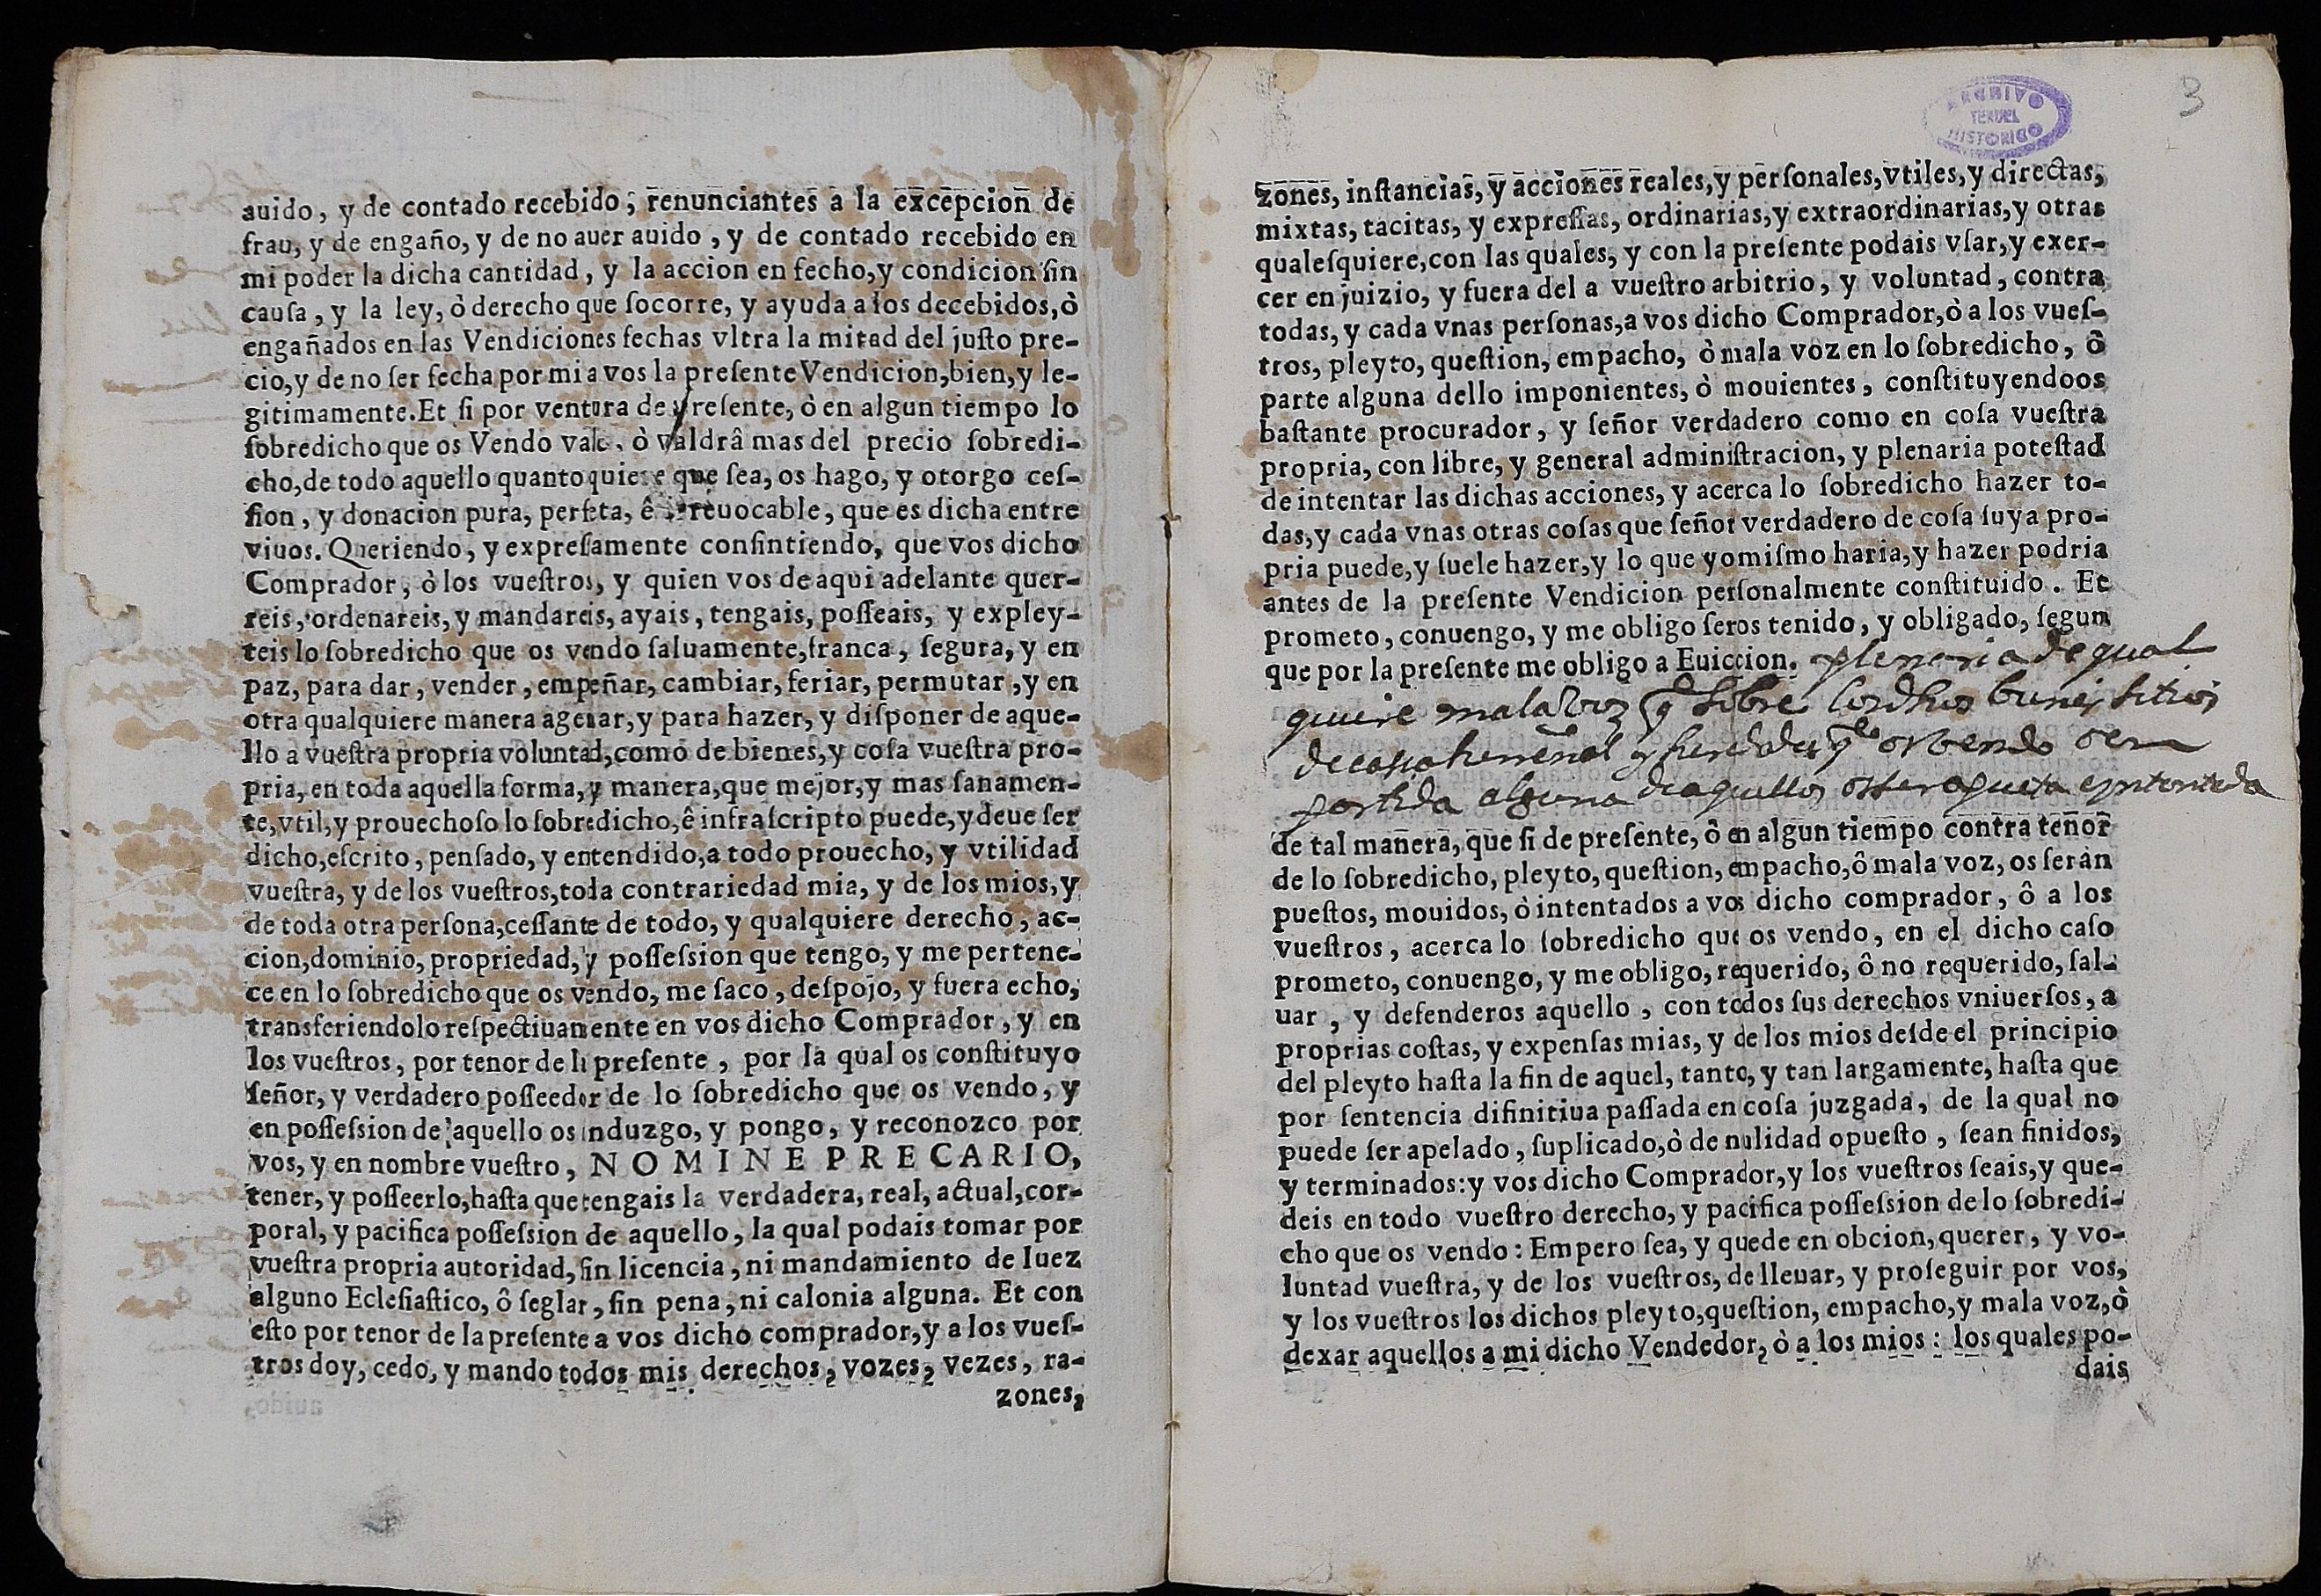 auido, y de contado recebido; renunciantes a la excepcion de
frau, y de engaño, y de no auer auido, y de contado recebido en
mi poder la dicha cantidad, y la accion en fecho, y condicion sin
causa, y la ley, ò derecho que socorre, y ayuda a los decebidos, ò
engañados en las Vendiciones fechas vltra la mitad del justo pre-
cio, y de no ser fecha por mi a vos la presente Vendicion, bien, y le-
gitimamente. Et si por ventura de presente, ò en algun tiempo lo
sobredicho que os Vendo vale, ò valdrâ mas del precio sobredi-
cho, de todo aquello quanto quiere que sea, os hago, y otorgo ces-
sion, y donacion pura, perfeta, ê irreuocable, que es dicha entre
viuos. Queriendo, y expresamente consintiendo, que vos dicho
Comprador, ò los vuestros, y quien vos de aqui adelante quer-
reis, ordenareis, y mandareis, ayais, tengais, posseais, y expley-
teis lo sobredicho que os vendo saluamente, franca, segura, y en
paz, para dar, vender, empeñar, cambiar, feriar, permutar, y en
otra qualquiere manera agenar, y para hazer, y disponer de aque-
llo a vuestra propria voluntad, como de bienes, y cosa vuestra pro-
pria, en toda aquella forma, y manera, que mejor, y mas sanamen-
te, vtil, y prouechoso lo sobredicho, ê infrascripto puede, y deue ser
dicho, escrito, pensado, y entendido, a todo prouecho, y vtilidad
vuestra, y de los vuestros, toda contrariedad mia, y de los mios, y
de toda otra persona, cessante de todo, y qualquiere derecho, ac-
cion, dominio, propriedad, y possession que tengo, y me pertene-
ce en lo sobredicho que os vendo, me saco, despojo, y fuera echo,
transferiendolo respectiuamente en vos dicho Comprador, y en
los vuestros, por tenor de la presente, por la qual os constituyo
señor, y verdadero posseedor de lo sobredicho que os vendo, y
en possession de aquello os induzgo, y pongo, y reconozco por
vos, y en nombre vuestro, NOMINE PRECARIO,
tener, y posseerlo, hasta que tengais la verdadera, real, actual, cor-
poral, y pacifica possession de aquello, la qual podais tomar por
vuestra propria autoridad, sin licencia, ni mandamiento de Iuez
alguno Eclesiastico, ô seglar, sin pena, ni calonia alguna. Et con
esto por tenor de la presente a vos dicho comprador, y a los vues-
tros doy, cedo, y mando todos mis derechos, vozes, vezes, ra-
zones,
3
HISTORICO
TERUEL
zones, instancias, y acciones reales, y personales, vtiles, y directas,
mixtas, tacitas, y expressas, ordinarias, y extraordinarias, y otras
qualesquiere, con las quales, y con la presente podais vsar, y exer-
cer en juizio, y fuera del a vuestro arbitrio, y voluntad, contra
todas, y cada vnas personas, a vos dicho Comprador, ò a los vues-
tros, pleyto, question, empacho, ò mala voz en lo sobredicho, ò
parte alguna dello imponientes, ò mouientes, constituyendoos
bastante procurador, y señor verdadero como en cosa vuestra
propria, con libre, y general administracion, y plenaria potestad
de intentar las dichas acciones, y acerca lo sobredicho hazer to-
das, y cada vnas otras cosas que señor verdadero de cosa suya pro-
pria puede, y suele hazer, y lo que yo mismo haria, y hazer podria
antes de la presente Vendicion personalmente constituido. Et
prometo, conuengo, y me obligo seros tenido, y obligado, segun
que por la presente me obligo a Euiccion. plenaria de qual
quiere mala voz q sobre los dhos bienes sitios
de casa herreñal y heredades q os vendo o en
partida alguna de aquellos os sera puesta e yntentada
de tal manera, que si de presente, ô en algun tiempo contra tenor
de lo sobredicho, pleyto, question, empacho, ô mala voz, os seràn
puestos, mouidos, ò intentados a vos dicho comprador, ô a los
vuestros, acerca lo sobredicho que os vendo, en el dicho caso
prometo, conuengo, y me obligo, requerido, ô no requerido, sal-
uar, y defenderos aquello, con todos sus derechos vniuersos, a
proprias costas, y expensas mias, y de los mios desde el principio
del pleyto hasta la fin de aquel, tanto, y tan largamente, hasta que
por sentencia difinitiua passada en cosa juzgada, de la qual no
puede ser apelado, suplicado, ò de nulidad opuesto, sean finidos,
y terminados: y vos dicho Comprador, y los vuestros seais, y que-
deis en todo vuestro derecho, y pacifica possession de lo sobredi-
cho que os vendo: Empero sea, y quede en obcion, querer, y vo-
luntad vuestra, y de los vuestros, de lleuar, y proseguir por vos,
y los vuestros los dichos pleyto, question, empacho, y mala voz, ò
dexar aquellos a mi dicho Vendedor, ò a los mios: los quales po-
dais